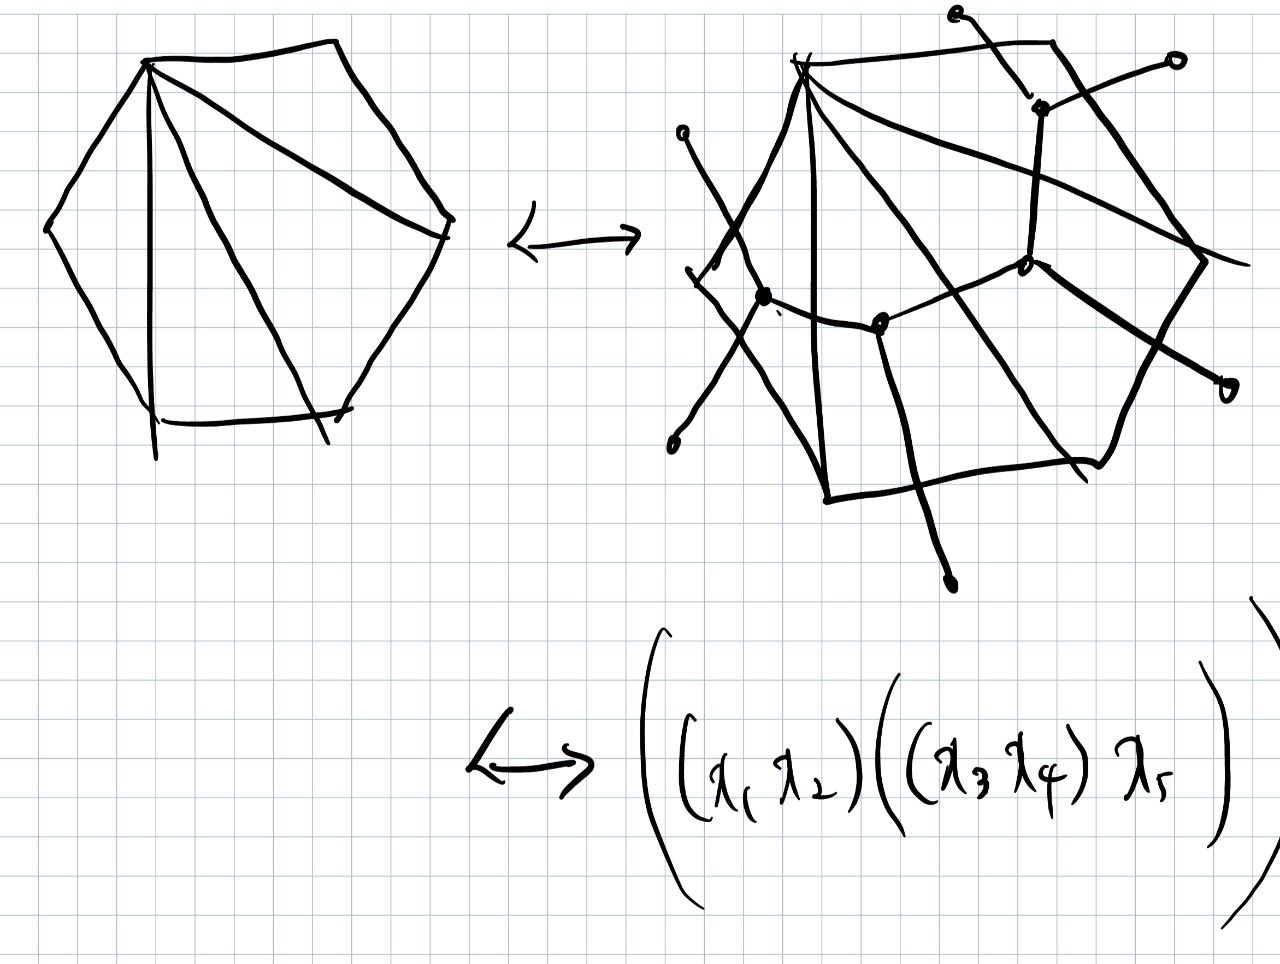 ↔
↔ ((λ₁ λ₂)((λ₃ λ₄) λ₅))